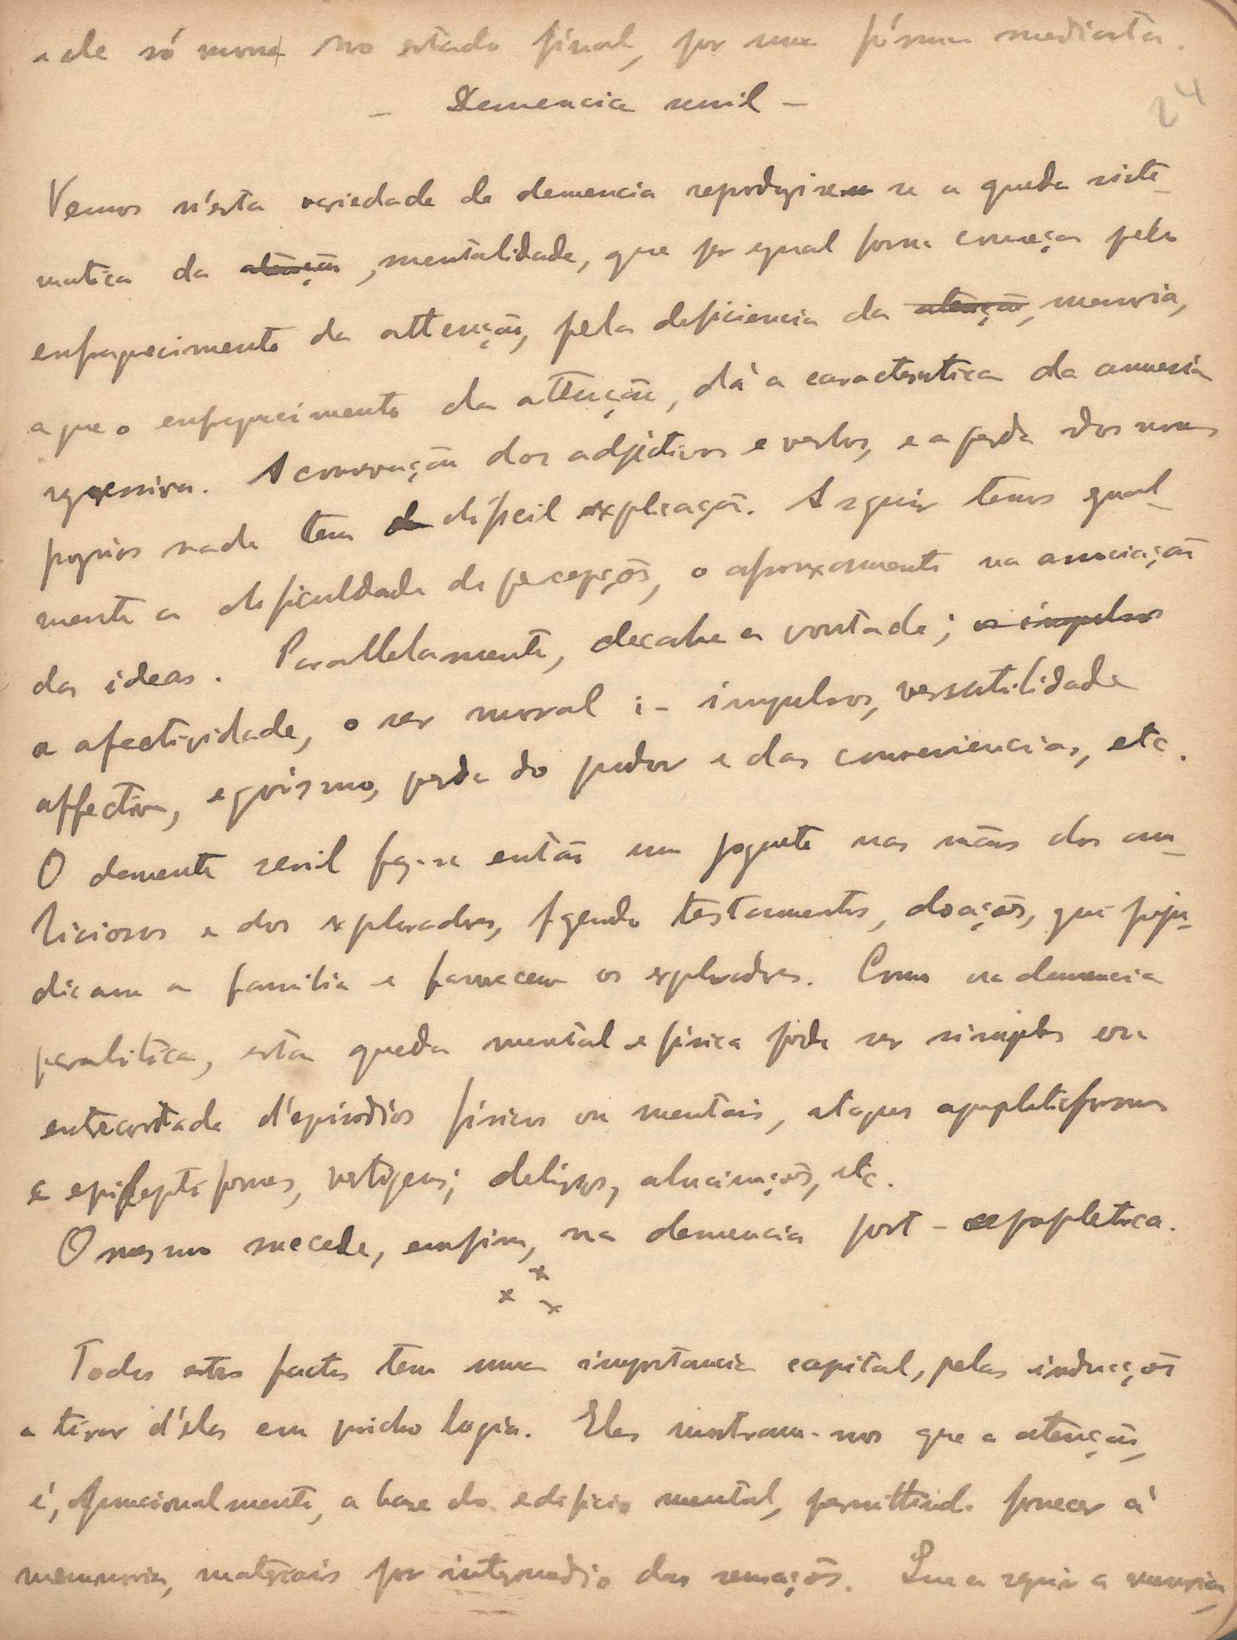 e ele só morre no estado final, por uma fórma mediata.
— Demencia senil —
24
Vemos n'esta variedade de demencia reproduzir se a queda siste-
matica da atenção, mentalidade, que por egual forma começa pelo
enfraquecimento da attenção, pela deficiencia da atenção, memoria,
a que o enfraquecimento da atenção, dá a caracteristica da amnesia
regressiva. A conservação dos adjétivos e verbos, e a perda dos nomes
proprios nada tem de difícil explicação. A seguir temos egual-
mente a dificuldade de percepções, o afrouxamento na associação
das ideas. Parallelamente, decahe a vontade; os impulsos
a afectividade, o ser moral :- impulsos, versatilidade
affectiva, egoísmo, perda do pudor e das conveniencias, etc.
O demente senil faz-se então um joguete nas mãos dos am-
biciosos e dos exploradores, fazendo testamentos, doações, que preju-
dicam a familia e favorecem os exploradores. Como na demencia
paralitica, esta queda mental e física póde ser simples ou
entrecortada d'episodios físicos ou mentais, ataques apopletiformes
e epileptiformes, vertigens; delirios, alucinações, etc.
O mesmo succede, emfim, na demencia post-apopletica.
x x x
Todos estes factos tem uma importancia capital, pelas inducções
a tirar d'élas em psichologia. Eles mostram-nos que a atenção,
é, funcionalmente, a base do edificio mental, permittindo fornecer á
memoria, materiais por intermedio das sensações. Que a seguir a memoria,